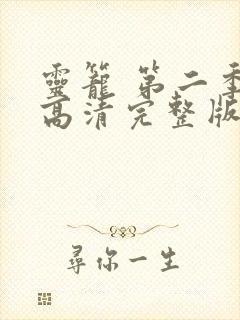 靈籠 第二季
高清完整版
尋你一生